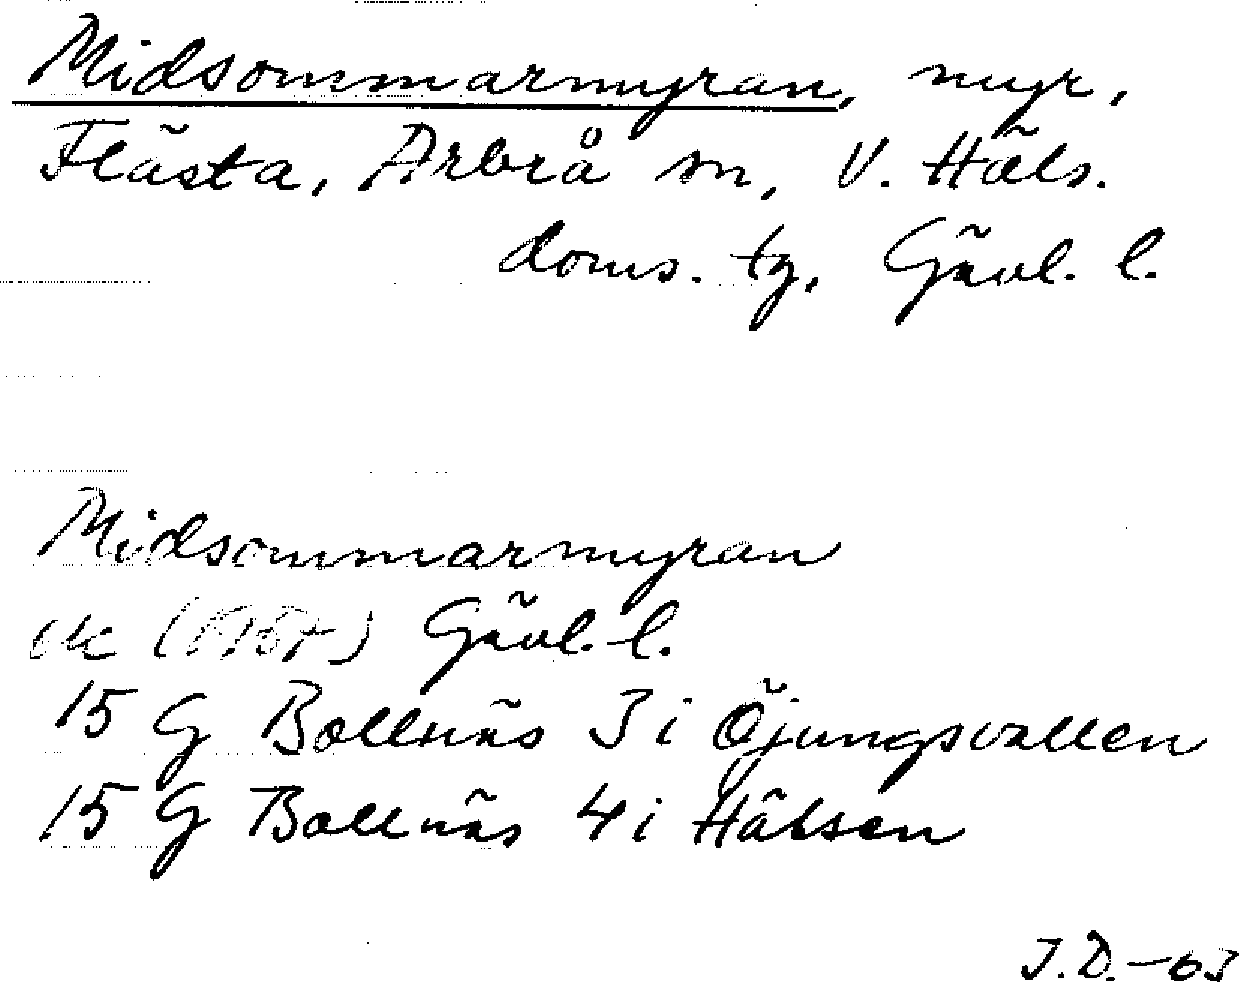 Midsommarmyran, myr,
Flästa, Arbrå sn, V. Häls.
doms. tg, Gävl. l.
Midsommarmyran
ek Gävl. l.
15 G Bollnäs 3 i Öjungsvallen
15 G Bollnäs 4 i Häbsen
J.D.-63